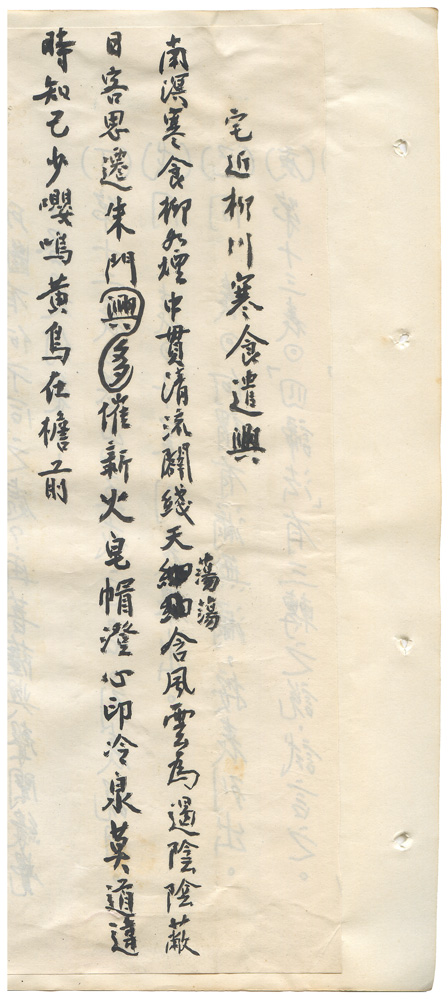 宅近柳川寒食遣興
南溟寒食柳如煙中貫清流闢綫天細細含風雲為遏陰陰蔽
蕩蕩
日客思遷朱門興多催新火皂帽澄心印冷泉莫道違
時知己少嚶鳴黃鳥在檐前